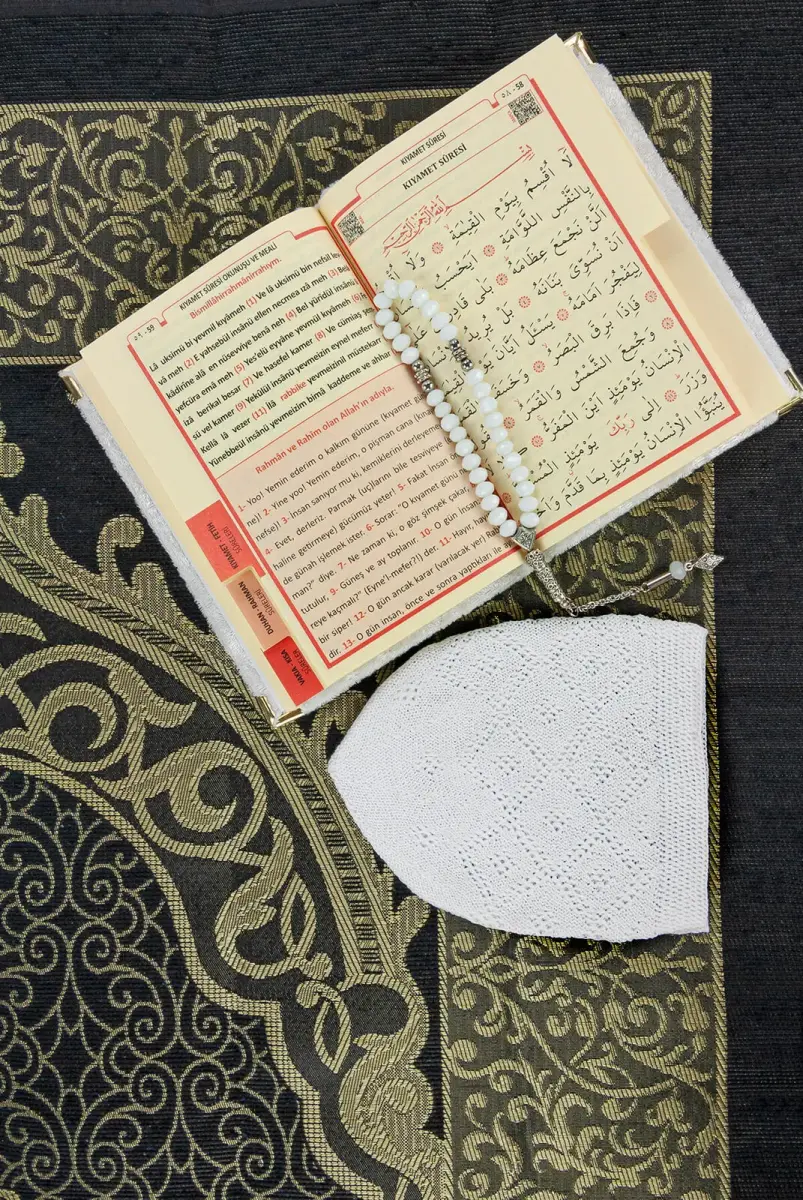 ٥٨ - 58
KIYAMET SÛRESİ
KIYAMET SÛRESİ
لَٓا اُقْسِمُ بِيَوْمِ الْقِيٰمَةِ وَلَٓا
بِالنَّفْسِ اللَّوَّامَةِ اَيَحْسَبُ
اَلَّنْ نَجْمَعَ عِظَامَهُ بَلٰى قَادِر
اَنْ نُسَوِّيَ بَنَانَهُ بَلْ يُرِيدُ
لِيَفْجُرَ اَمَامَهُ يَسْـَٔلُ اَيَّانَ
فَاِذَا بَرِقَ الْبَصَرُ وَخَسَفَ
وَجُمِعَ الشَّمْسُ وَالْقَمَرُ
الْاِنْسَانُ يَوْمَئِذٍ اَيْنَ الْمَفَرُّ
وَزَرَ اِلٰى رَبِّكَ يَوْمَئِذٍ
يُنَبَّؤُا الْاِنْسَانُ يَوْمَئِذٍ بِمَا قَدَّمَ
٥٩ - 59
KIYAMET SÛRESİ OKUNUŞU VE MEALİ
Bismillâhirrahmânirrahıym.
Lâ uksimü bi yevmil kıyâmeh (1) Ve lâ uksimü bin nefsil
vâ meh (2) E yahsebül insânü ellen necmea ızâ meh (3)
kâdirîne alâ en nüsevviye benâ neh (4) Bel yürîdül insânü
yefcüra emâ meh (5) Yes'elü eyyâne yevmül kıyâmeh (6)
izâ berikal besar (7) Ve hasefel kamer (8) Ve cümiaş
sü vel kamer (9) Yekûlül insânü yevmeizin eynel mefer
Kellâ lâ vezer (11) İlâ rabbike yevmeizinil müstekar
Yünebbeül insânü yevmeizim bimâ kaddeme ve ahhar
Rahmân ve Rahîm olan Allah'ın adıyla.
1- Yoo! Yemin ederim o kalkım gününe (kıyamet
ne) 2- Yine yoo! Yemin ederim, o pişman cana
nefse) 3- İnsan sanıyor mu ki, kemiklerini derleyemeyiz
4- Evet, derleriz. Parmak (uç)larını bile tesviye
haline getirmeye) gücümüz yeter! 5- Fakat insan
de günah işlemek ister. 6- Sorar: "O kıyamet
man?" diye. 7- Ne zaman ki, o göz şimşek çakar
tutulur, 9- Güneş ve ay toplanır. 10- O gün insan
reye kaçmalı?" (Eyne'l-mefer?!) der. 11- Hayır,
bir siper! 12- O gün ancak karar (varılacak yer)
dir. 13- O gün insan, önce ve sonra yaptıkları ile
KIYAMET - FETİH
SÛRELERİ
DUHAN - RAHMAN
SÛRELERİ
VAKIA - KISA
SÛRELER